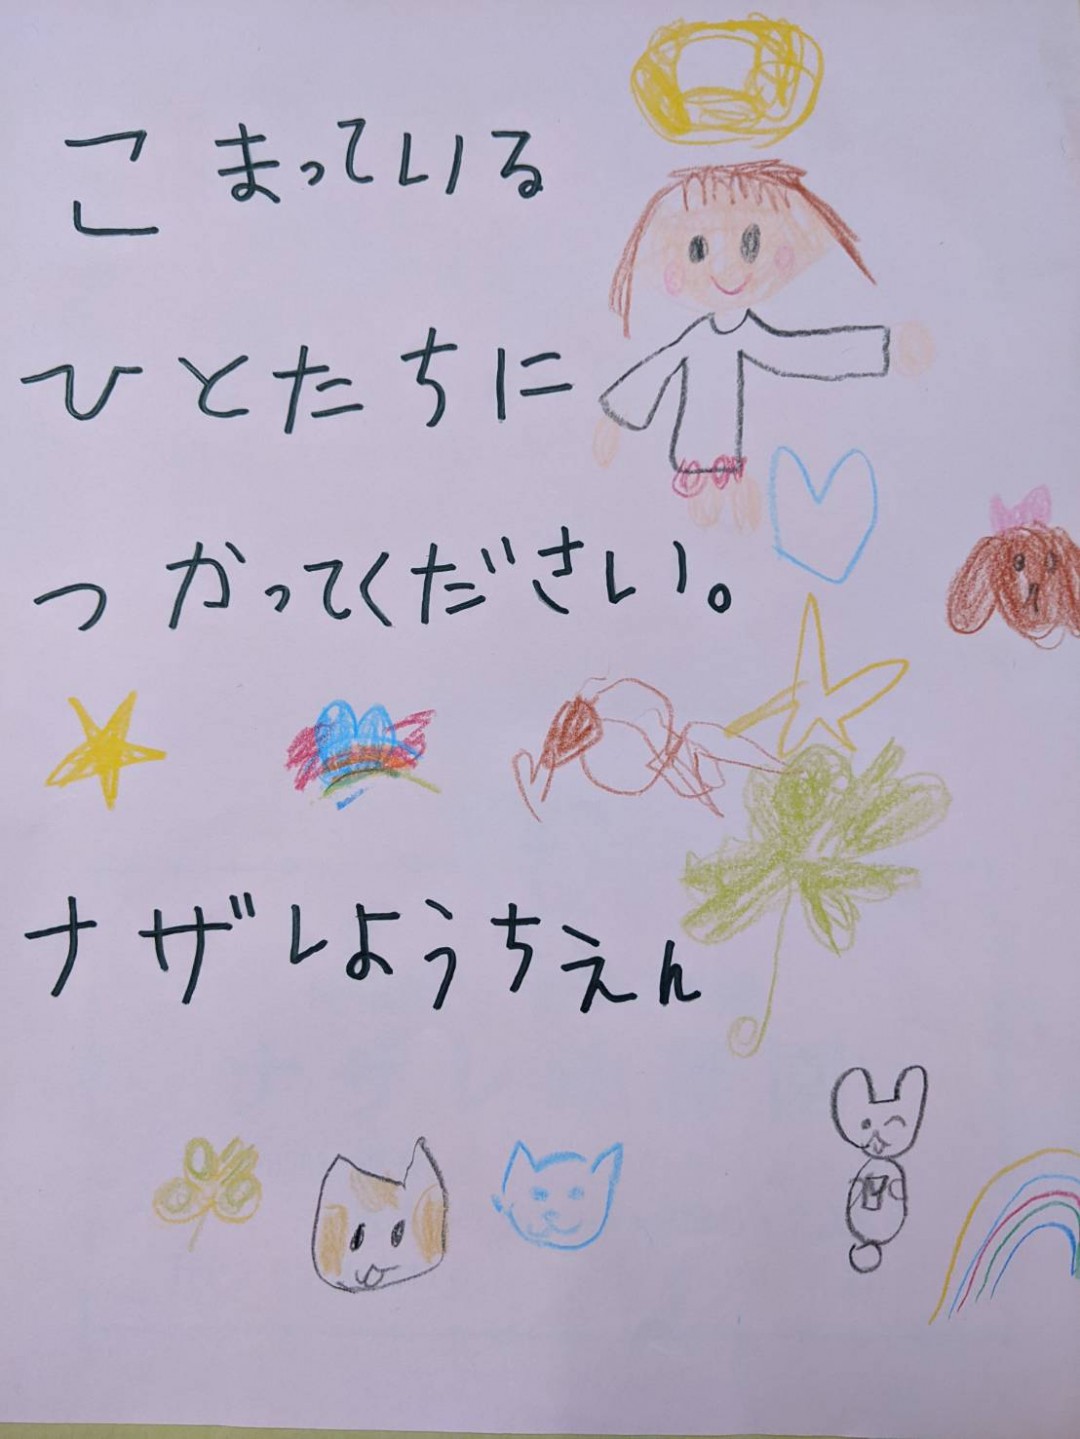 こまっている
ひとたちに
つかってください。
ナザレようちえん